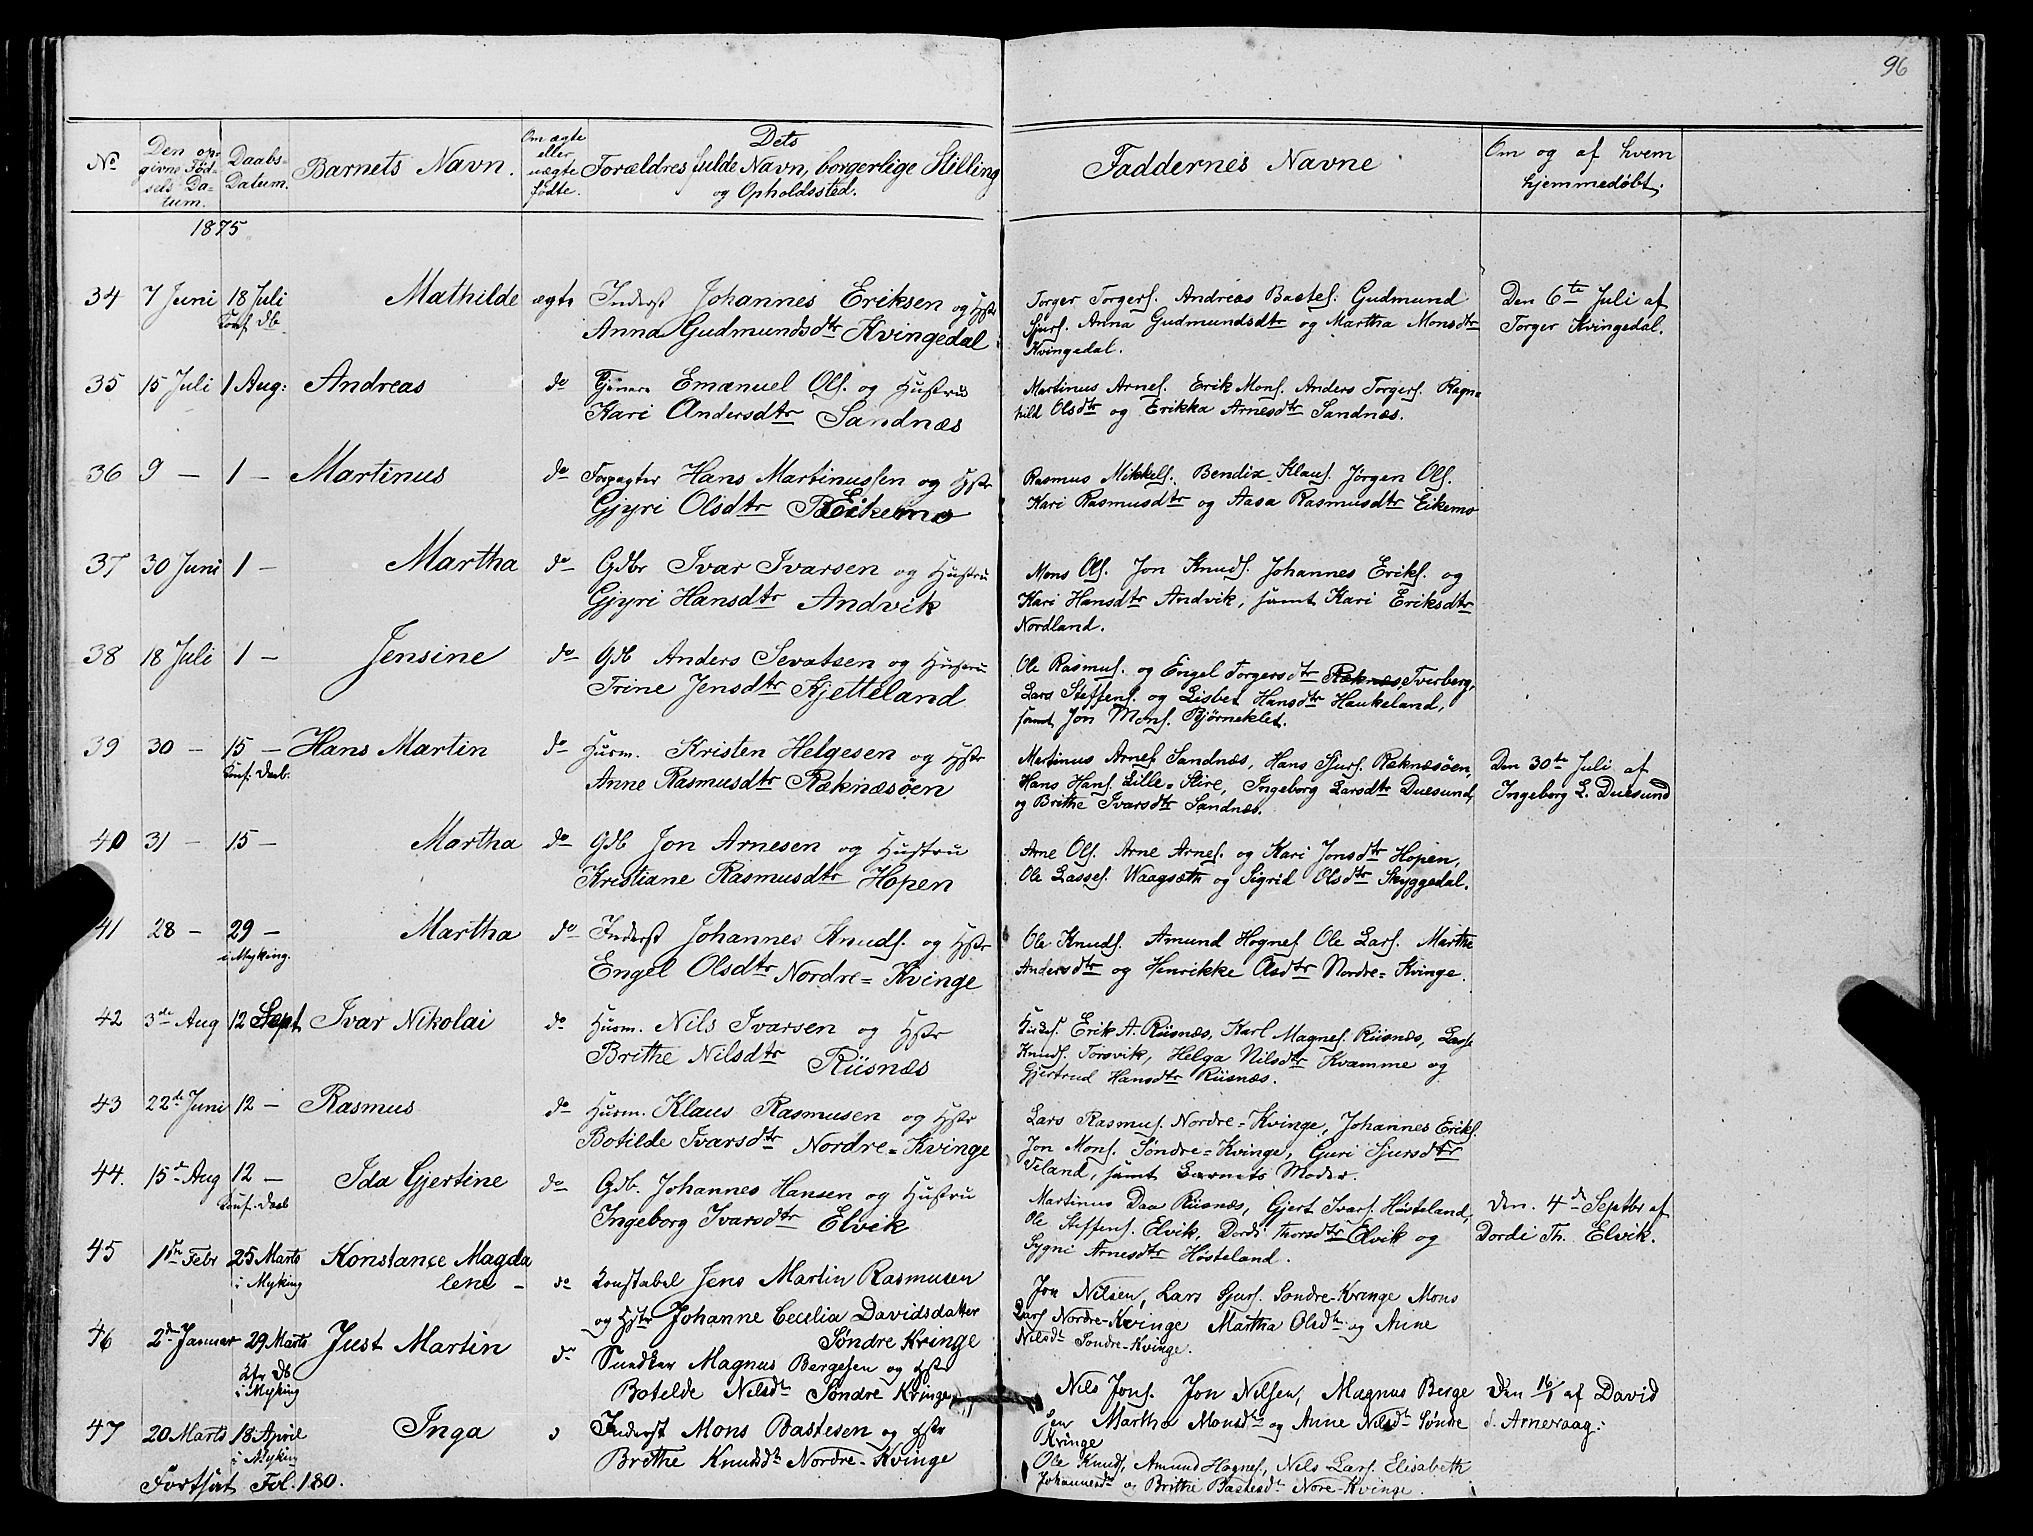 96
No
Den op-
givne Fød-
sels Da-
tum.
Daabs-
Datum.
Barnets Navn.
Om ægte
eller
uægte
fødte.
Dets
Forældres fulde Navn, borgerlige Stilling
og Opholdssted.
Faddernes Navne
Om og af hvem
hjemmedøbt.
1875
34 7 Juni 18 Juli Mathilde ægte Inderst Johannes Eriksen og Hstr
Konf. Db.
Anna Gudmundsdtr Kvingedal
Torger Torgers. Andreas Bastes. Gudmund
Sjurs. Anna Gudmundsdtr og Martha Monsdtr
Kvingedal.
Den 6te Juli af
Torger Kvingedal.
35 15 Juli 1 Aug: Andreas do Emanuel Ols. og Hustru
Kari Andersdtr Sandnæs
Martinus Arnes. Erik Mons. Anders Torgers. Ragn-
hild Olsdtr og Erikka Arnesdtr Sandnæs.
36 9 — 1 — Martinus do Forpagter Hans Martinussen og Hstr
Gjyri Olsdtr Eikemo
Rasmus Mikkels. Bendix Klaus. Jørgen Ols.
Kari Rasmusdtr og Aasa Rasmusdtr Eikemo
37 30 Juni 1 — Martha do Gdbr Ivar Ivarsen og Hustru
Gjyri Hansdtr Andvik
Mons Ols. Jon Knuds. Johannes Eriks. og
Kari Hansdtr Andvik, samt Kari Eriksdtr
Nordland.
38 18 Juli 1 — Jensine do Gdb Anders Sevatsen og Hustru
Trine Jensdtr Kjetteland
Ole Rasmus. og Engel TorgersdtrRæknæs, Tverberg,
Lars Steffens. og Lisbet Hansdtr Haukeland,
samt Jon Mons. Bjørneklet.
39 30 — 15 — Hans Martin do Husm. Kristen Helgesen og Hstr
Konf. Daab.
Anne Rasmusdtr Ræknæsøen
Martinus Arnes Sandnæs, Hans Sjurs. Ræknæsøen,
Hans Hans. Lille-Hire, Ingeborg Larsdtr Duesund,
og Brithe Ivarsdtr Sandnæs.
Den 30te Juli af
Ingeborg L. Duesund
40 31 — 15 — Martha do Gdb Jon Arnesen og Hustru
Kristiane Rasmusdtr Hopen
Arne Ols. Arne Arnes. og Kari Jonsdtr Hopen,
Ole Lasses. Waagsæth og Sigrid Olsdtr Skyggedal.
41 28 — 29 — Martha do Inderst Johannes Knuds. og Hstr
i Myking.
Engel Olsdtr Nordre-Kvinge
Ole Knuds. Amund Hognes. Ole Lars. Marthe
Andersdtr og Henrikke Olsdtr Nordre-Kvinge.
42 3de Aug 12 Sept Ivar Nikolai do Husm. Nils Ivarsen og Hstr
Brithe Nilsdtr Riisnæs
Erik A. Riisnæs, Karl Magnes. Riisnæs, Lasse
Knuds. Torsvik, Helga Nilsdtr Kvamme og
Gjertrud Hansdtr Riisnæs.
43 22de Juni 12 — Rasmus do Husm. Klaus Rasmusen og Hstr
Botilde Ivarsdtr Nordre-Kvinge
Lars Rasmus. Nordre-Kvinge, Johannes Eriks.
Jon Mons. Søndre-Kvinge, Guri Sjursdtr
Veland, samt Barnets Moder.
44. 15de Aug 12 — Ida Gjertine do Gdb. Johannes Hansen og Hustru
Konf. Daab
Ingeborg Ivarsdtr Elvik
Martinus Daa Riisnæs, Gjert Ivars. Høsteland,
Ole Steffens. Elvik, Dordi Thorsdtr Elvik og
Sygni Arnesdtr Høsteland.
Den. 4de Septbr af
Dordi Th. Elvik.
45 1ste Febr 25 Marts Konstance Magda
i Myking
lene — do Konstabel Jens Martin Rasmusen
og Hstr Johanne Cecilia Davidsdatter
Søndre Kvinge
Jon Nilsen, Lars Sjurs. Søndre-Kvinge Mons
Lars Nordre-Kvinge Martha Olsdtr og Anne
Nilsdtr Søndre-Kvinge.
46 2den Januar 29 Marts Just Martin do Snedker Magnus Bergesen og Hstr
Kfr Db
i Myking
Botelde Nilsdtr Søndre Kvinge
Nils Jons. Jon Nilsen, Magnus Berge
sen Martha Monsdtr og Anne Nilsdtr Søndre
Kvinge
Den 16/1 af David
Arneraag:
47 20 Marts 18 April Inga Inderst Mons Bastesen og Hstr
i Myking
Brithe Knudsdtr Nordre-Kvinge
Ole Knuds, Amund Hognes, Nils Lars. Elisabeth
Johannesdtr og Brithe Bastesdtr Nore-Kvinge.
Fortsat Fol. 180.